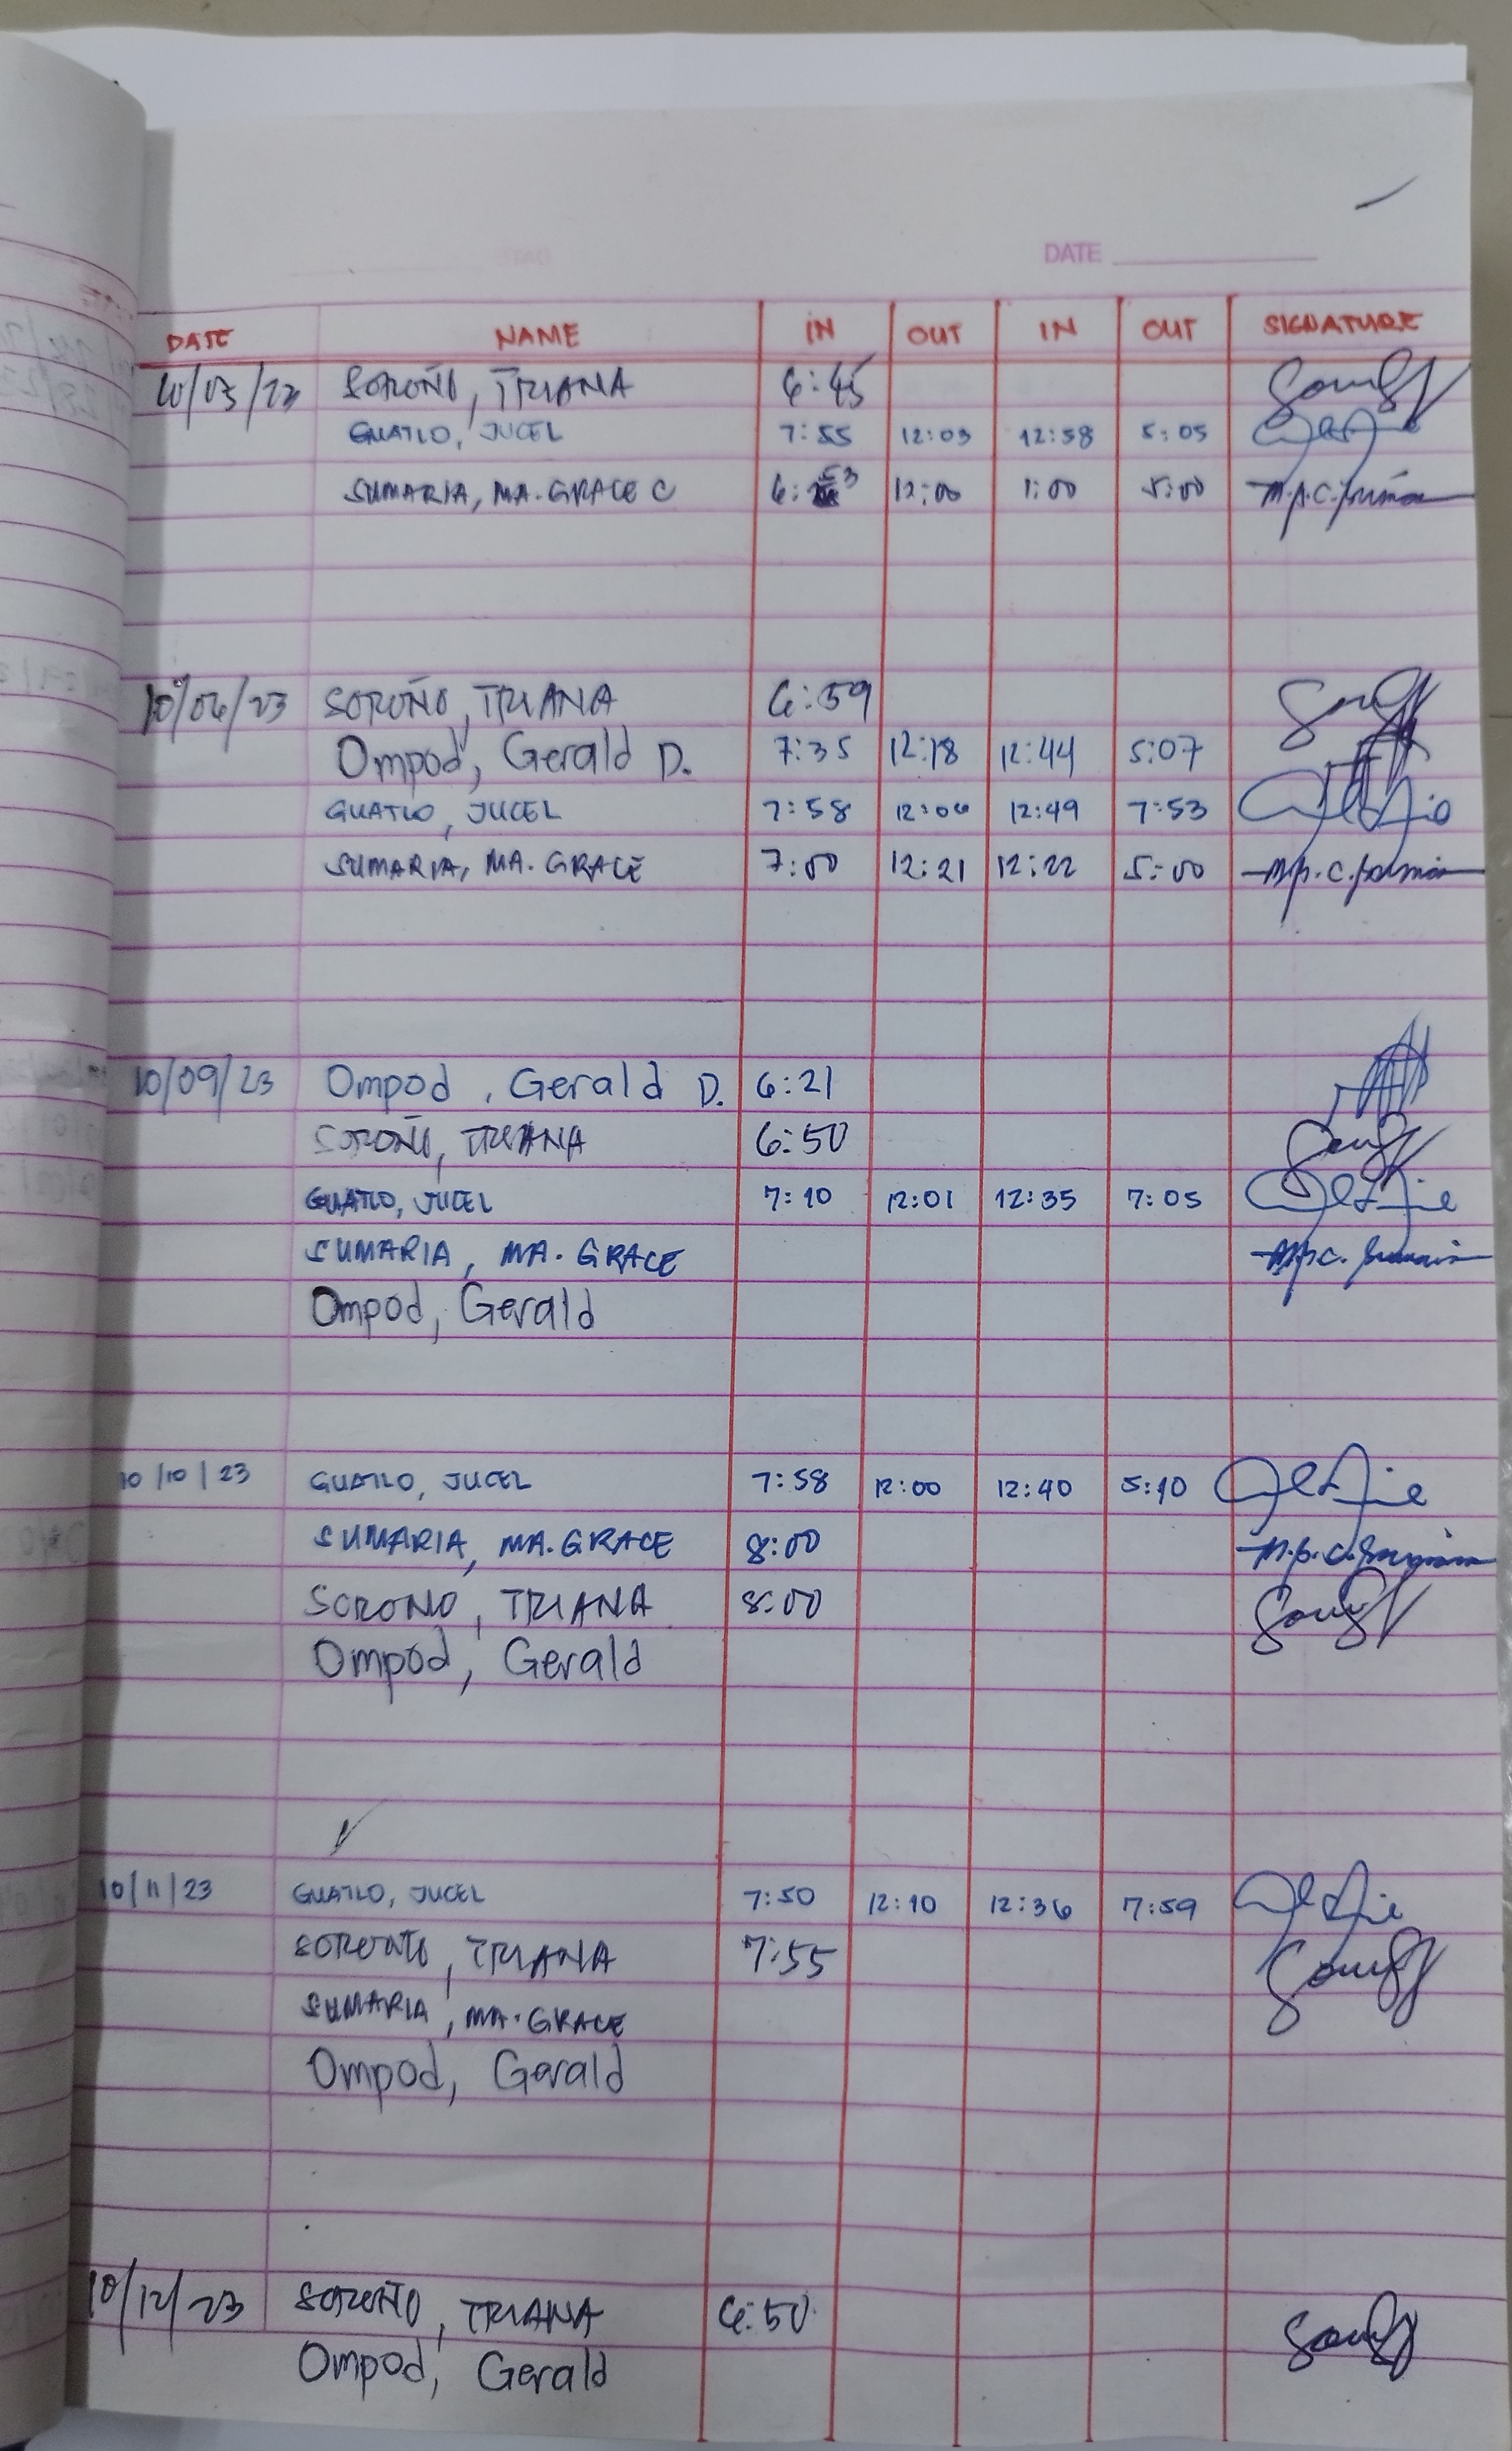 DATE
DATE NAME IN OUT IN OUT SIGNATURE
SOROÑO, TRIANA 6:45
GUATLO, JUCEL 7:55 12:03 12:58 5:05
SUMARIA, MA. GRACE C 6:53 12:00 1:00 5:00
SOROÑO, TRIANA 6:59
Ompod, Gerald D. 7:35 12:18 12:44 5:07
GUATLO, JUCEL 7:58 12:06 12:49 7:53
SUMARIA, MA. GRACE 7:00 12:21 12:22 5:00
10/09/23 Ompod, Gerald D. 6:21
SOROÑO, TRIANA 6:50
GUATLO, JUCEL 7:10 12:01 12:35 7:05
SUMARIA, MA. GRACE
Ompod, Gerald
10/10/23 GUATLO, JUCEL 7:58 12:00 12:40 5:10
SUMARIA, MA. GRACE 8:00
SOROÑO, TRIANA 8:00
Ompod, Gerald
10/11/23 GUATLO, JUCEL 7:50 12:10 12:36 7:59
SOROÑO, TRIANA 7:55
SUMARIA, MA. GRACE
Ompod, Gerald
10/12/23 SOROÑO, TRIANA 6:50
Ompod, Gerald